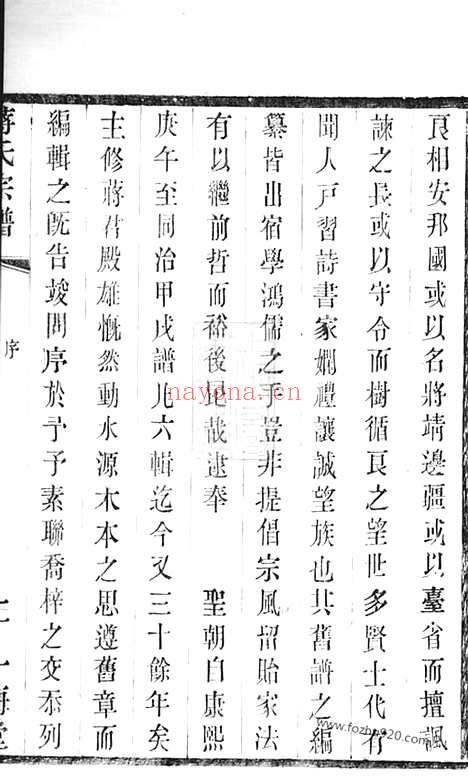 良相安邦國或以名將靖邊疆或以臺省而擅諷
諫之長或以守令而樹循良之望世多賢士代有
聞人戸習詩書家嫺禮讓誠望族也其舊譜之編
纂皆出宿學鴻儒之手豈非提倡宗風留貽家法
有以繼前哲而裕後昆哉逮奉 聖朝自康熙
庚午至同治甲戌譜凡六輯迄今又三十餘年矣
主修蔣君殿雄慨然動水源木本之思遵舊章而
編輯之旣告竣問序於予予素聯喬梓之交忝列
蔣氏宗譜
序
nayona.cn
www.fozhu920.com